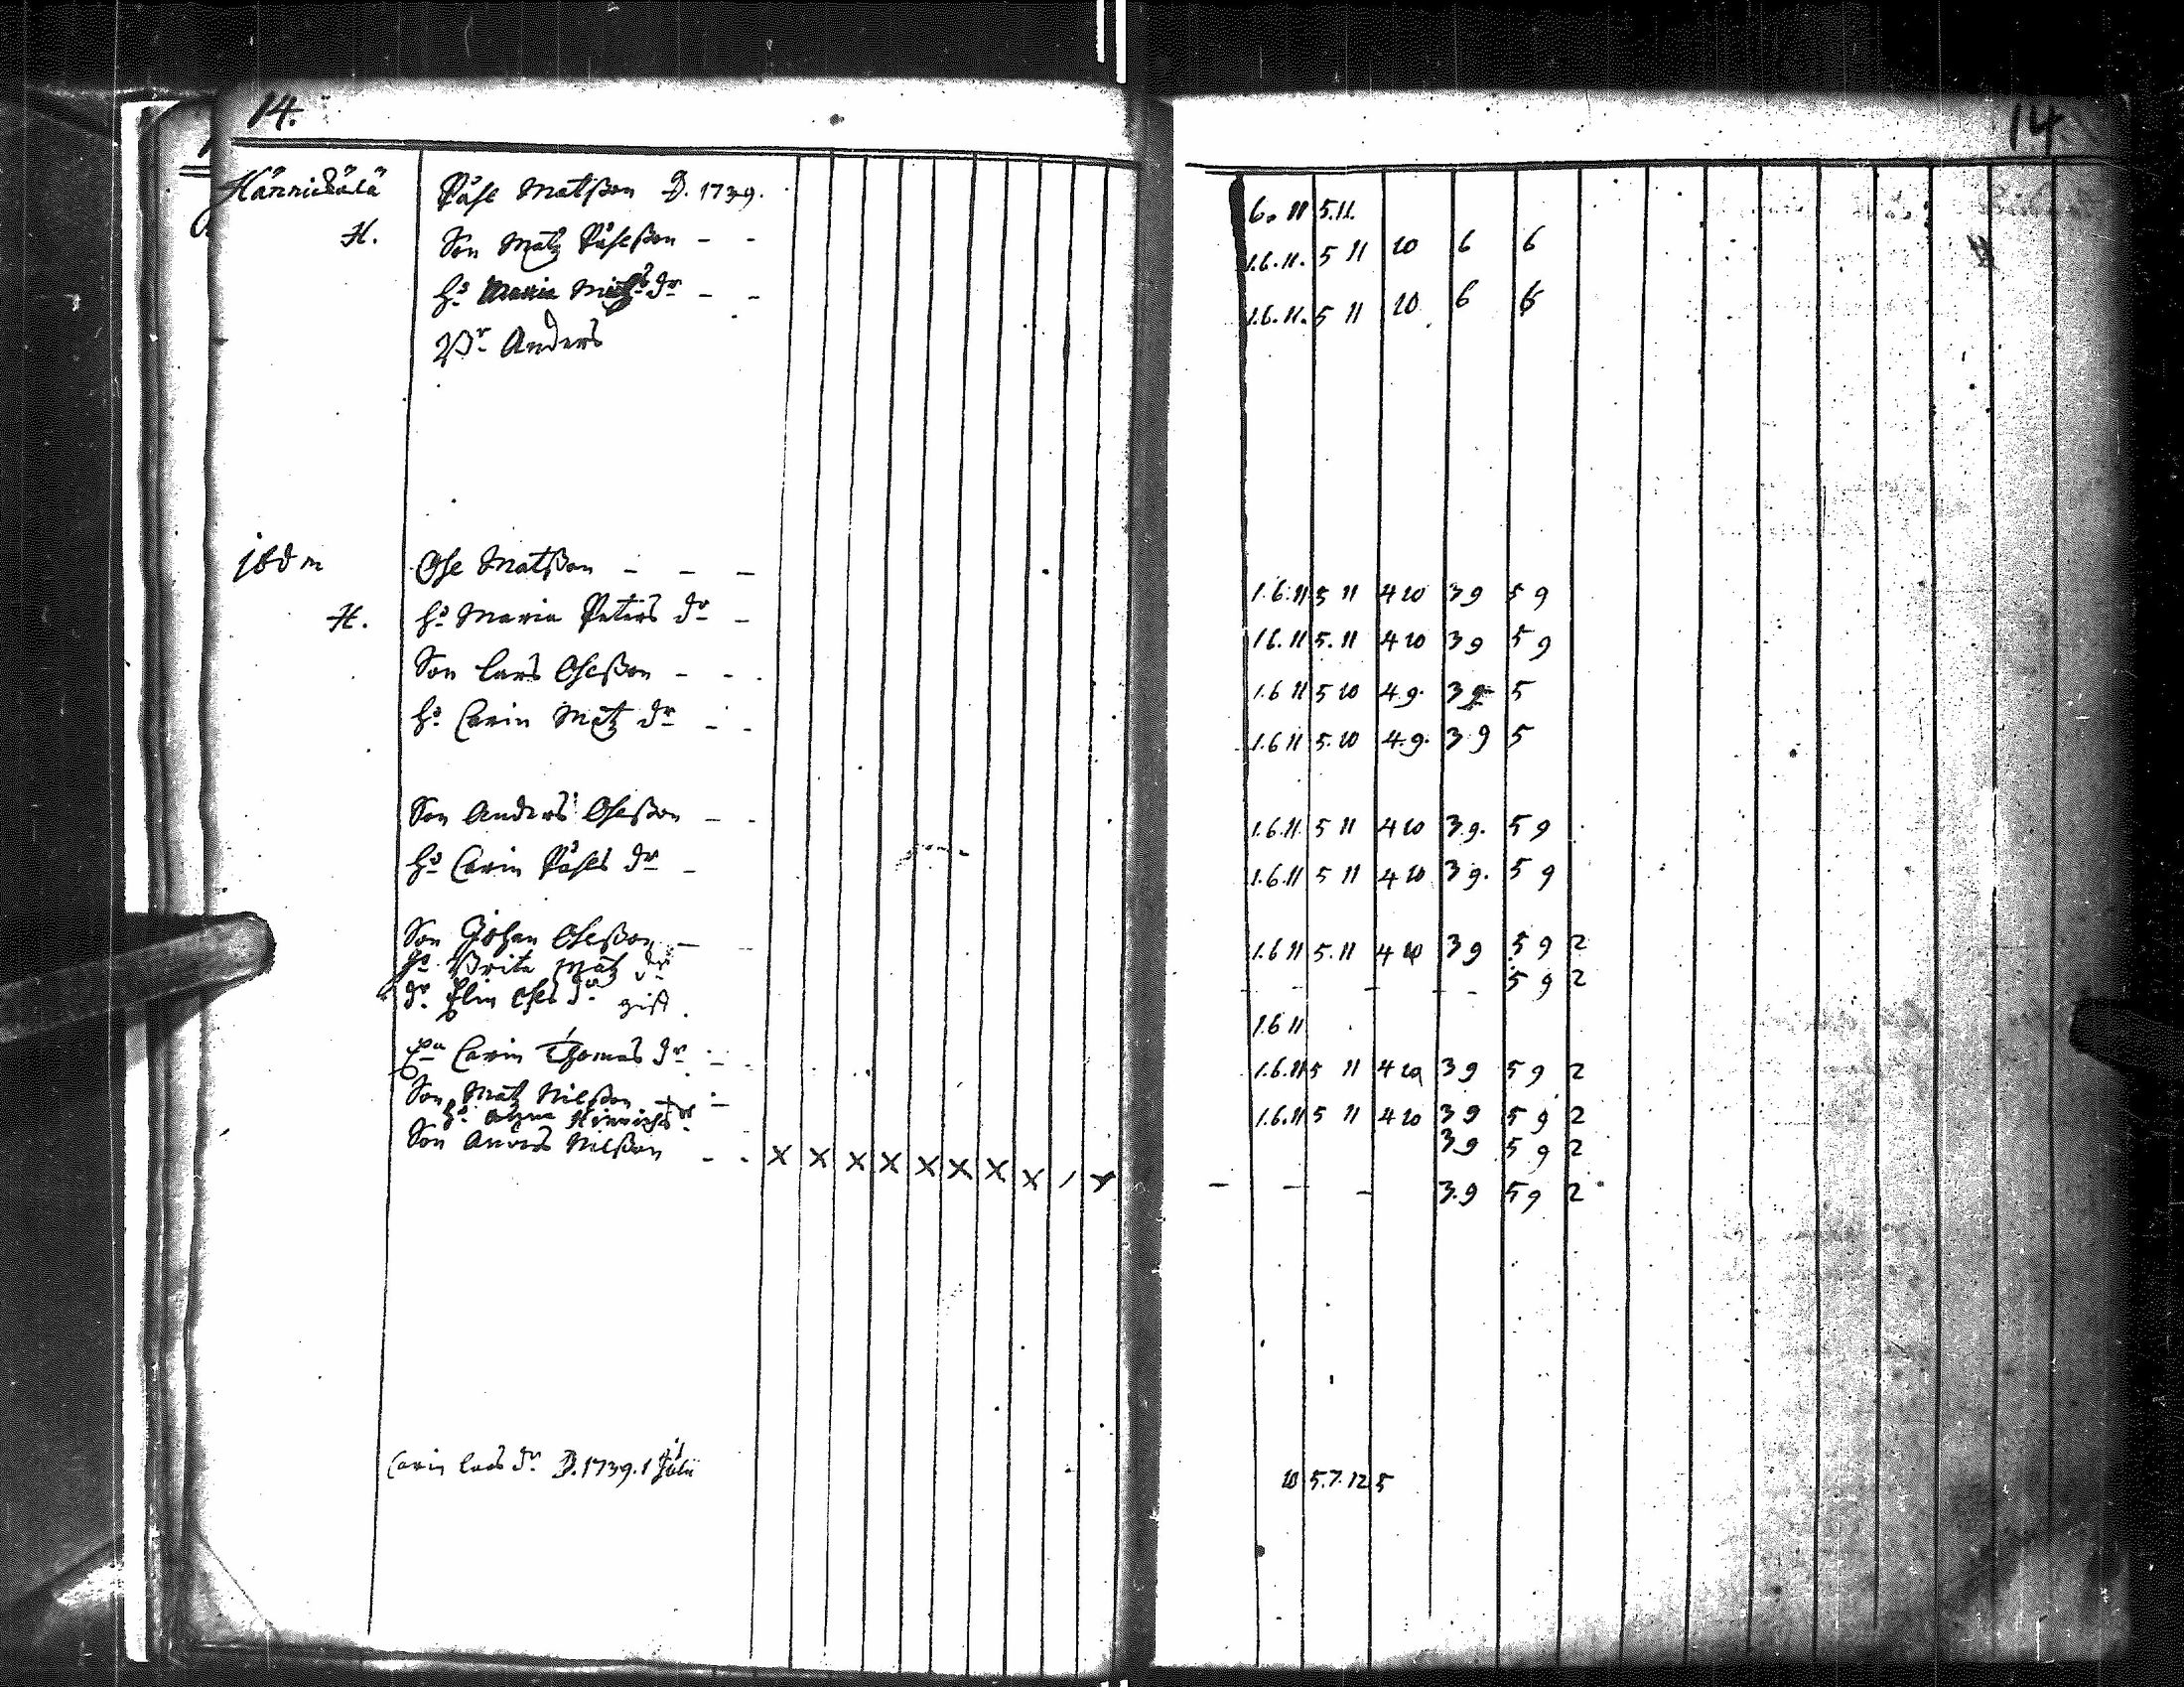 14.
Hännickälä Påhl Matsson D. 1739. 6. 11 5.11.
H. Son Matz Påhlsson - - 1.6.11. 5 11 10 6 6
h:o Maria dr - - 1.6.11. 5 11 10 6 6
Br Anders
14
ibdm Ohl Matsson - - - 1.6.11 5 11 4 10 3 9 5 9
H. h:o Maria Peters dr - 1.6.11 5.11 4 10 3 9 5 9
Son Lars Ohlsson - - . 1.6 11 5 10 4 9. 3 9 5
h:o Carin Matz dr - - 1.6 11 5.10 4.9. 3 9 5
Son Anders Ohlsson - - 1.6.11. 5 11 4 10 3.9. 5 9
h:o Carin Påhls dr - 1.6.11 5 11 4 10 3 9. 5 9
Son Johan Ohlsson - - 1.6 11 5.11 4 10 3 9 5 9 2
h:o Brita Matz dr - - - - 5 9 2
dr Elin Ohls dr gift. 1.6 11
Carin Thomas dr - - 1.6.11 5 11 4 10 3 9 5 9 2
Son Matz Nilsson - 1.6.11 5 11 4 10 3 9 5 9 2
h:o Anna Hinrichs dr 3 9 5 9 2
Son Anders Nilsson - - x x x x x x x x / x - - - 3.9 5 9 2
Carin Lars dr D. 1739. 1 Julii 10 5.7.12 5